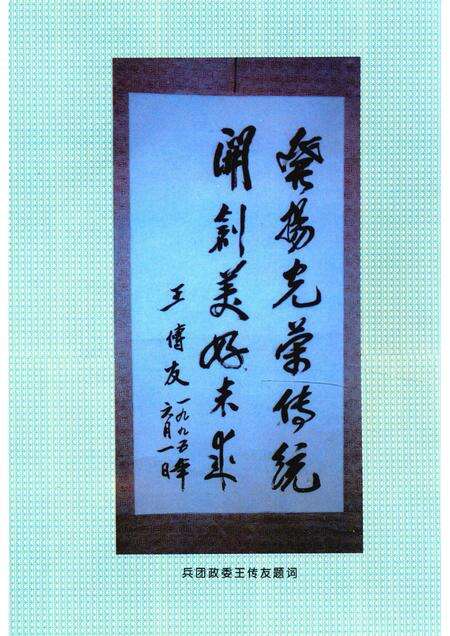 發揚光荣传统
開創美好未来
王传友
一九九五年
六月一日
兵团政委王传友题词